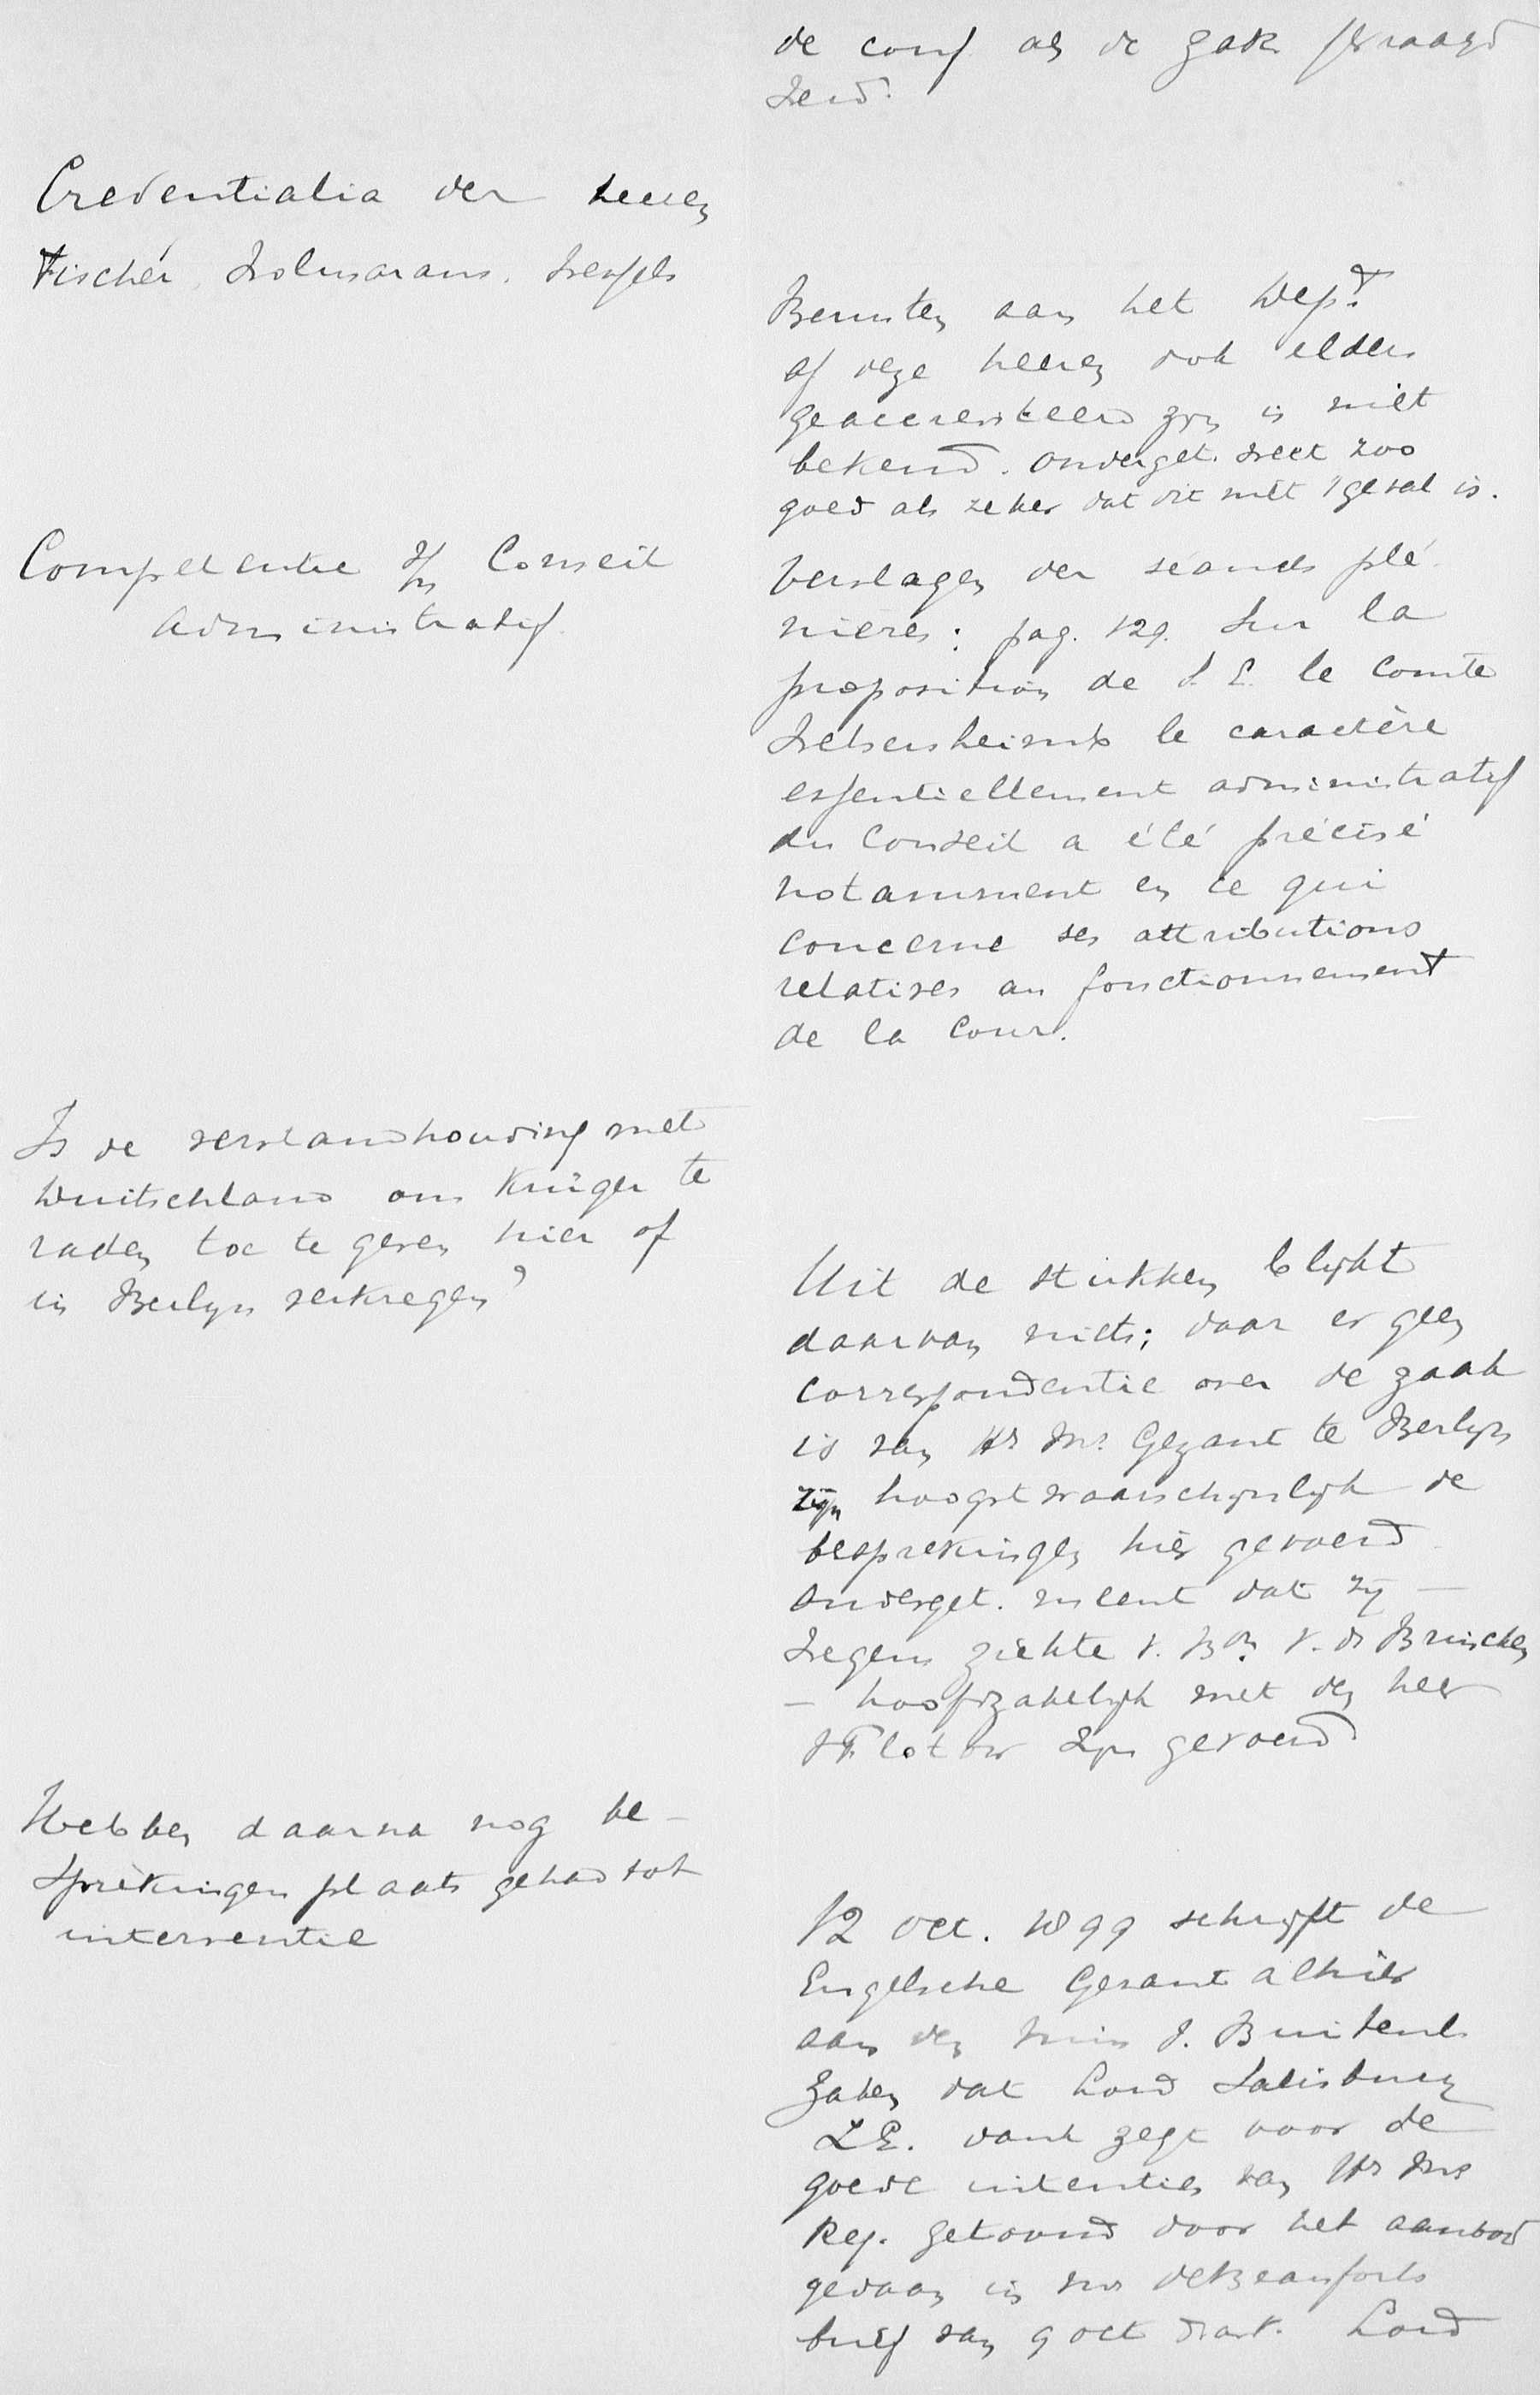 de conf als de zaak gevraagd
werd.
Credentialia der heeren
Fischer, Wolmarans, Wessels
Berusten aan het Dept.
of deze heeren ook elders
geaccrediteerd zyn is niet
bekend. Onderget. weet zoo
goed als zeker dat dit niet 't geval is.
Competentie v/h Conseil
Administratif.
Verslagen der séances plé-
nières: pag. 129. Sur la
proposition de S. E. le Comte
Welsersheimb le caractère
essentiellement administratif
du Conseil a été précisé
notamment en ce qui
concerne ses attributions
relatives au fonctionnement
de la Cour.
Is de verstandhouding met
Duitschland om Krüger te
raden toe te geven hier of
in Berlyn verkregen?
Uit de stukken blykt
daarvan niets; daar er geen
correspondentie over de zaak
is van Hr Ms Gezant te Berlyn
zijn hoogst waarschynlyk de
besprekingen hier gevoerd.
Onderget. meent dat zy —
wegens ziekte v. Bn. v. d. Brincken
— hoofdzakelyk met den heer
v Flotow zyn gevoerd
Hebben daarna nog be-
sprekingen plaats gehad tot
interventie
12 Oct. 1899 schryft de
Engelsche Gezant alhier
aan den Min v. Buitenl.
Zaken dat Lord Salisbury
Z.E. dank zegt voor de
goede intenties van Hr Ms
Reg. getoond door het aanbod
gedaan in mr de Beauforts
brief van 9 Oct. Lord